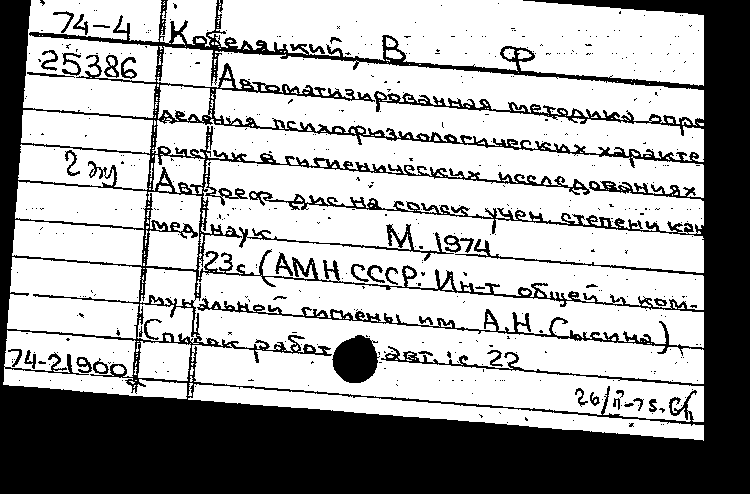 74-4 Кобеляцкий, В Ф
25386
Автоматизированная методика опре
деления психофизиологических характе
2 эк ристик в гигиенических исследованиях.
Автореф дис на соиск учен. степени кан
мед наук. М., 1974.
23с. (АМН СССР: Ин-т общей и ком-
мунальной гигиены им. А.Н.Сысина).
Список работ авт.: с. 22
74-21900
26/II-75.